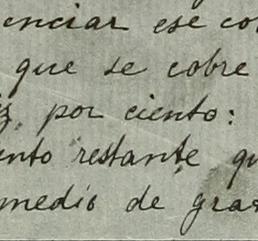 enciar ese co
que se cobre
por ciento:
ento restante qu
medio de gra